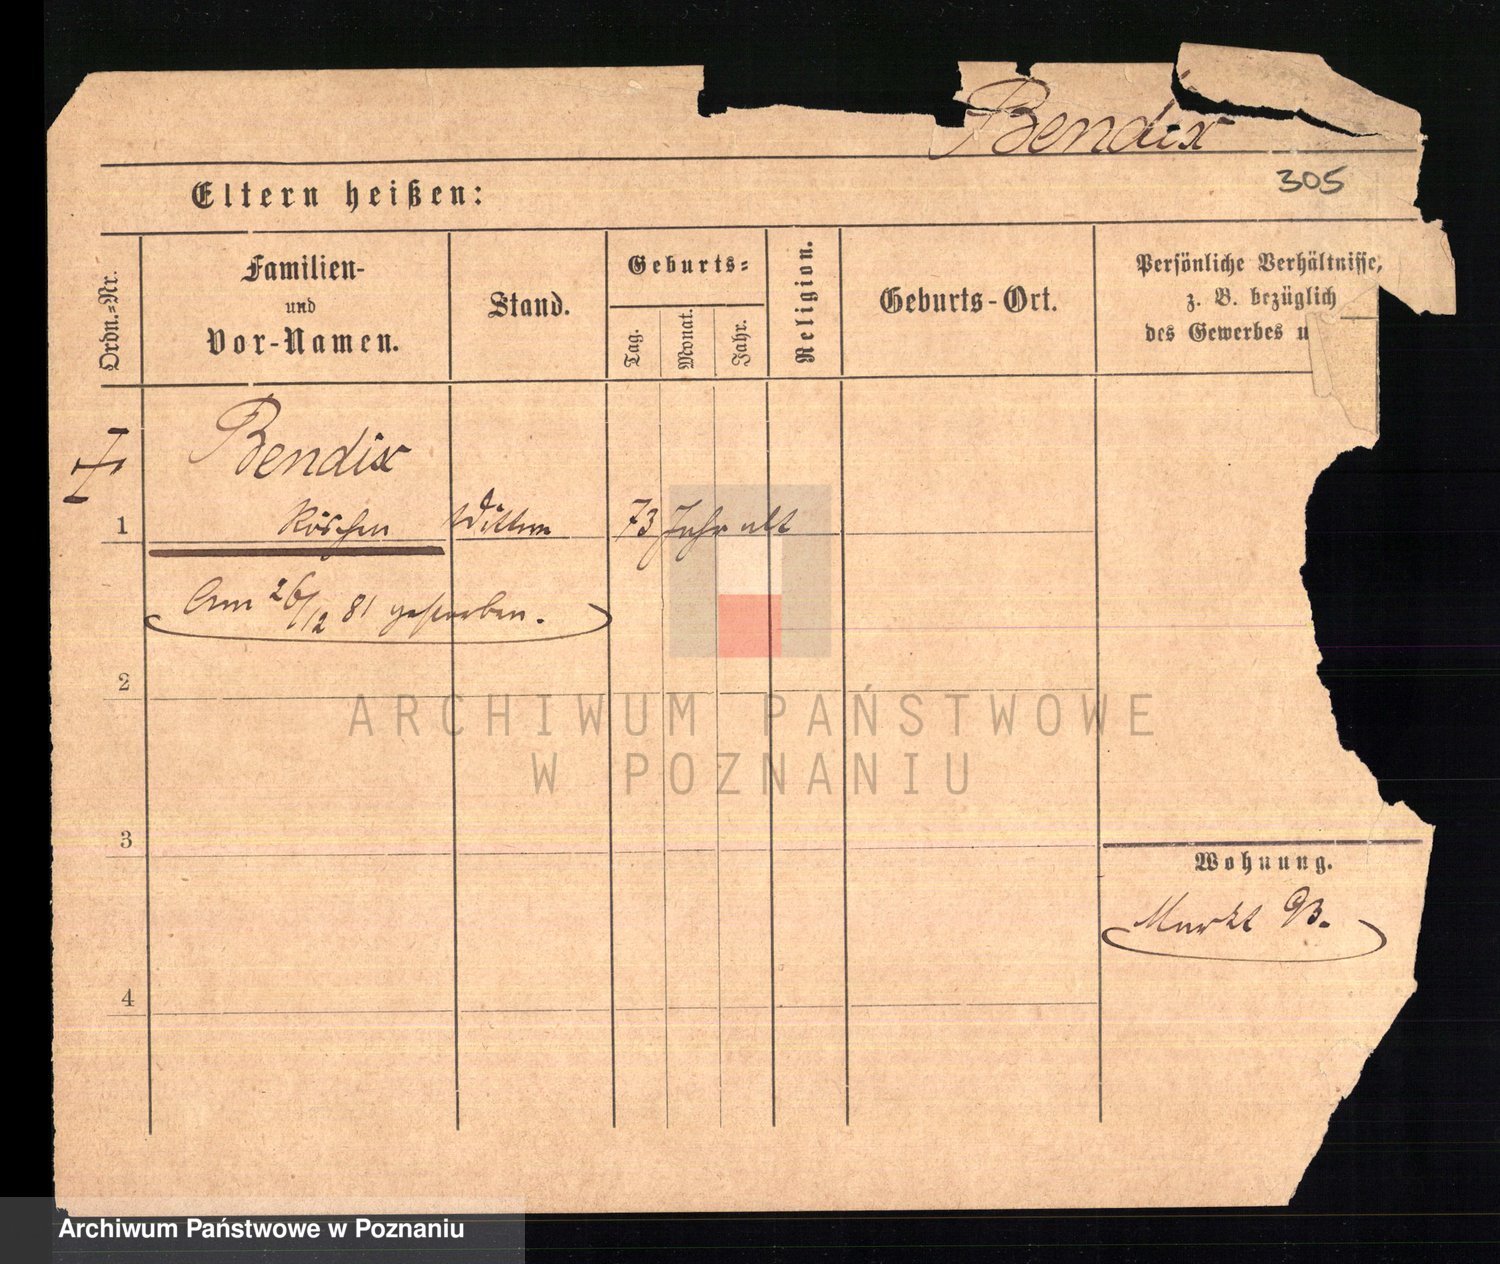 Bendix
305
Eltern heißen:
Ordn.-Nr.
Familien-
und
Vor-Namen.
Stand.
Geburts-
Tag.
Monat.
Jahr.
Religion.
Geburts-Ort.
Persönliche Verhältnisse,
z. B. bezüglich
des Gewerbes u
Bendix
1 Röschen Wittwe 73 Jahr alt
Am 26/12 81 gestorben.
2
ARCHIWUM PAŃSTWOWE
W POZNANIU
3
Wohnung.
Markt 93.
4
Archiwum Państwowe w Poznaniu